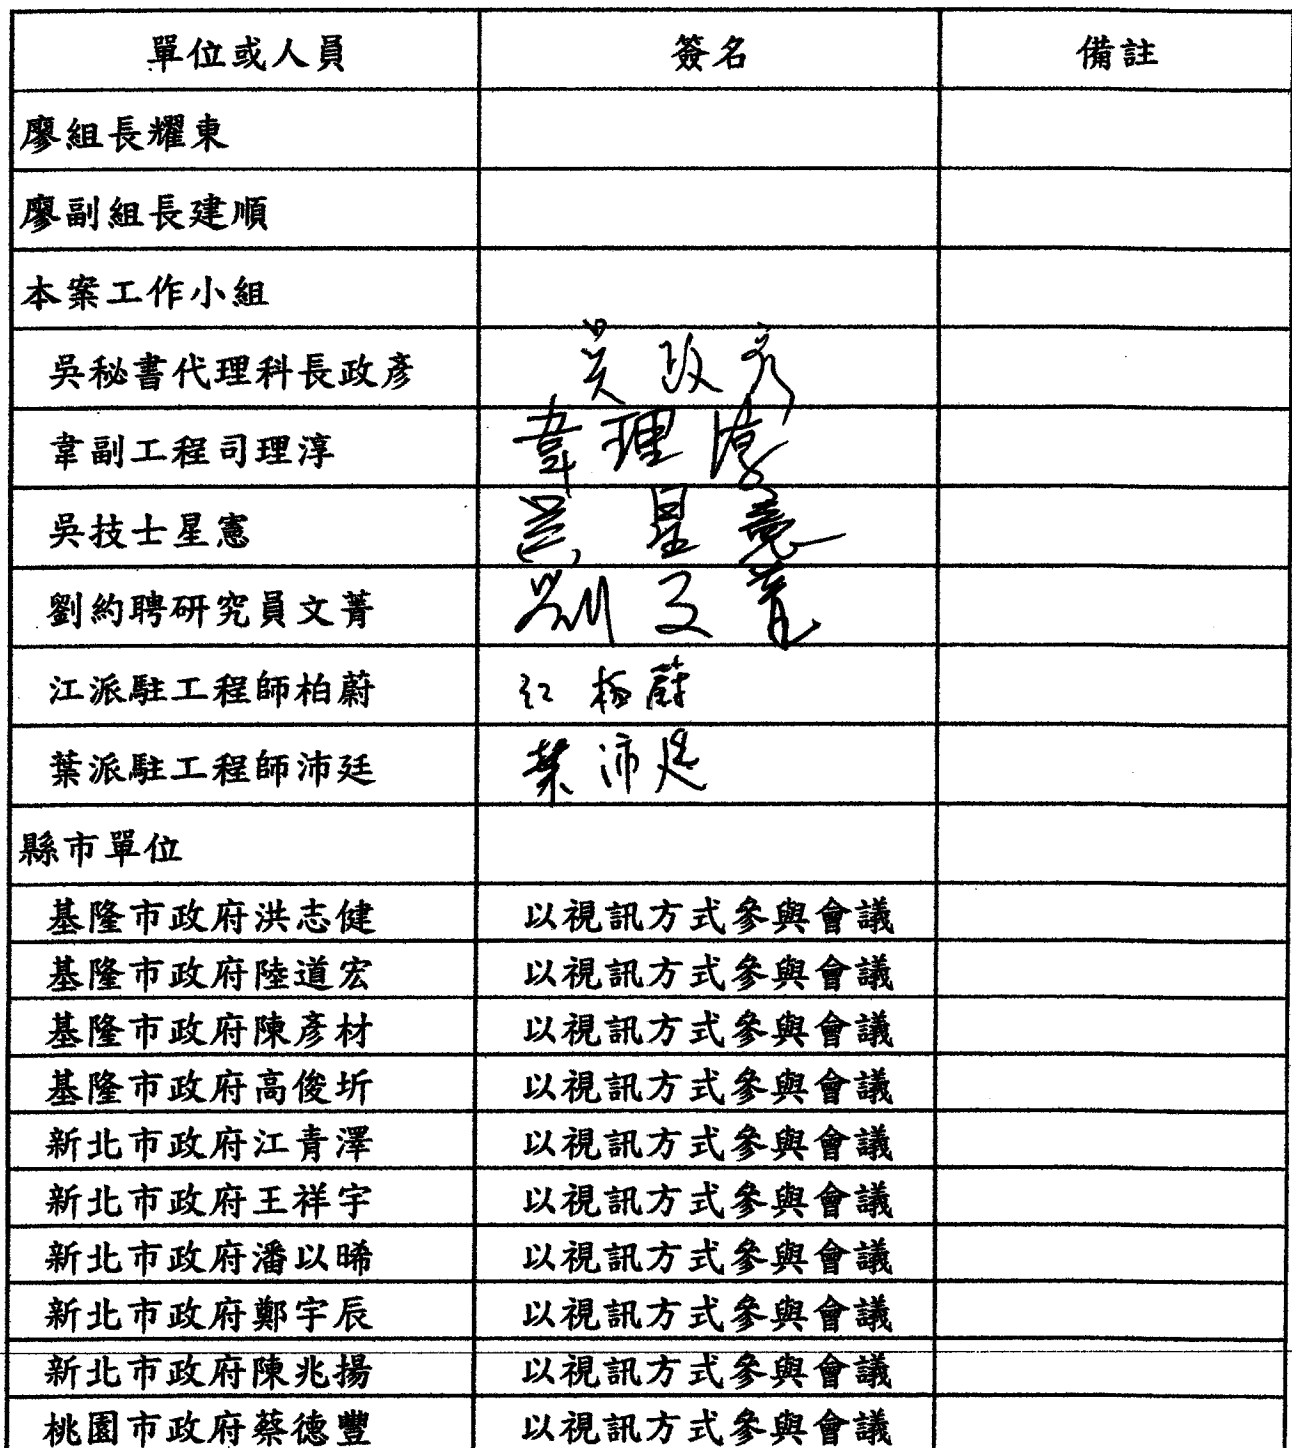 單位或人員 簽名 備註
廖組長耀東
廖副組長建順
本案工作小組
吳秘書代理科長政彥 吳政彥
韋副工程司理淳 韋理淳
吳技士星憲 吳星憲
劉約聘研究員文菁 劉文菁
江派駐工程師柏蔚 江柏蔚
葉派駐工程師沛廷 葉沛廷
縣市單位
基隆市政府洪志健 以視訊方式參與會議
基隆市政府陸道宏 以視訊方式參與會議
基隆市政府陳彥材 以視訊方式參與會議
基隆市政府高俊圻 以視訊方式參與會議
新北市政府江青澤 以視訊方式參與會議
新北市政府王祥宇 以視訊方式參與會議
新北市政府潘以晞 以視訊方式參與會議
新北市政府鄭宇辰 以視訊方式參與會議
新北市政府陳兆揚 以視訊方式參與會議
桃園市政府蔡德豐 以視訊方式參與會議